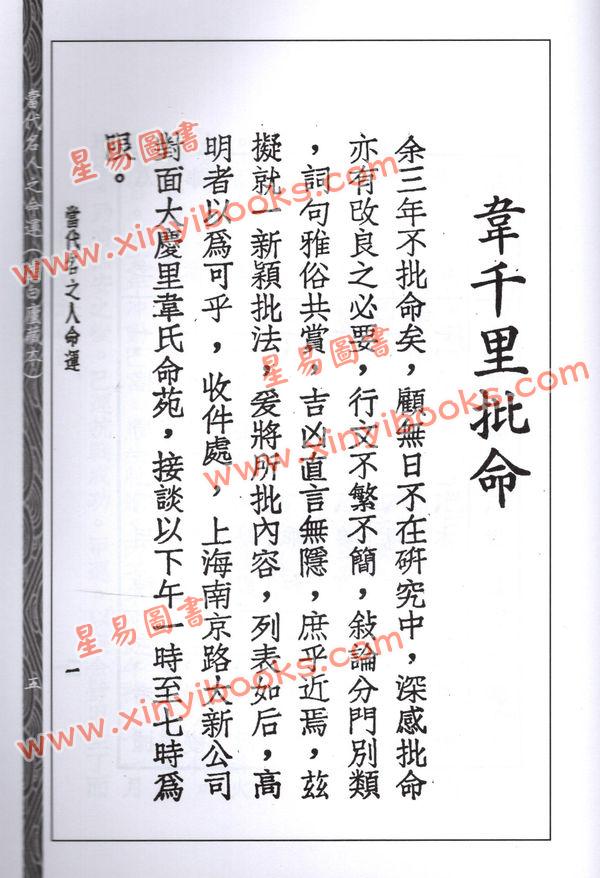 韋千里批命
余三年不批命矣，顧無日不在研究中，深感批命
亦有改良之必要，行文不繁不簡，敍論分門別類
，詞句雅俗共賞，吉凶直言無隱，庶乎近焉，茲
擬就一新穎批法，爰將所批內容，列表如后，高
明者以爲可乎，收件處，上海南京路大新公司
對面大慶里韋氏命苑，接談以下午一時至七時爲
限。
當代名之人命運
一
當代名人之命運
藏本）
五
星易圖書
www.xinyibooks.com
星易圖書
www.xinyibooks.com
星易圖書
www.xinyibooks.com